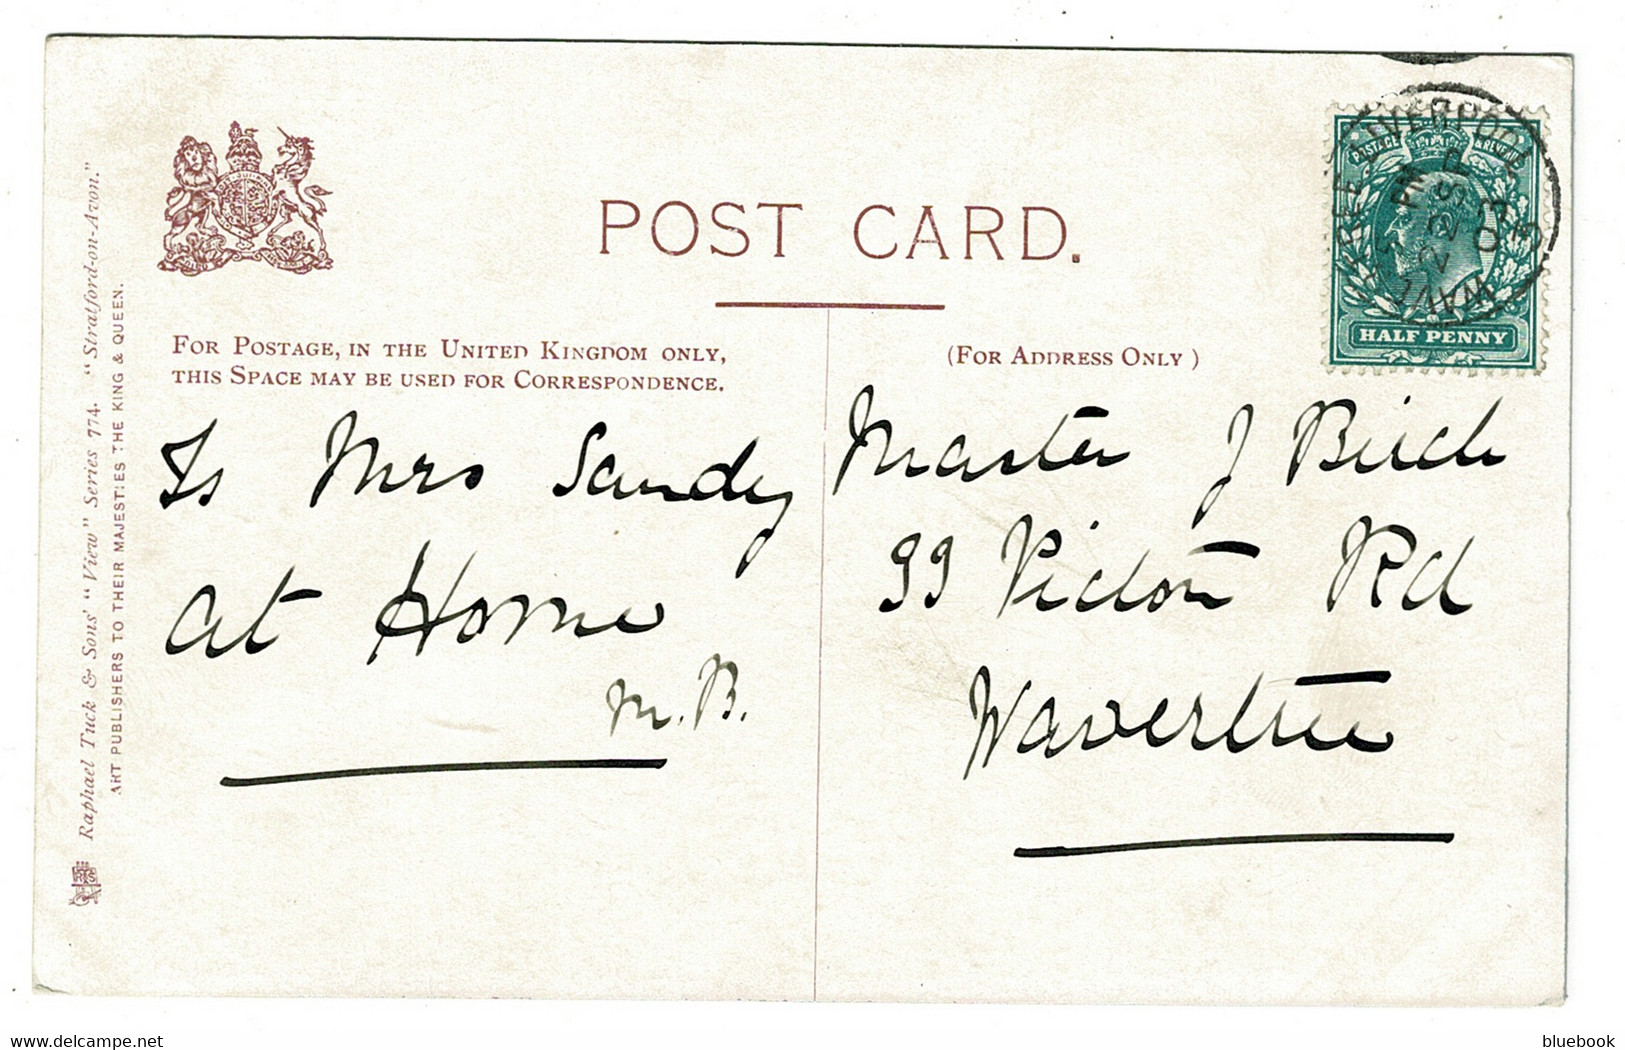 POST CARD.
FOR POSTAGE, IN THE UNITED KINGDOM ONLY,
THIS SPACE MAY BE USED FOR CORRESPONDENCE.
(FOR ADDRESS ONLY)
Is Mrs Sandy
at Home
M.B.
Master J Birch
99 Picton Rd
Wavertree
Raphael Tuck & Sons' "View" Series 774. "Stratford-on-Avon."
ART PUBLISHERS TO THEIR MAJESTIES THE KING & QUEEN.
POSTAGE & REVENUE
HALF PENNY
LIVERPOOL
03
delcampe.net
bluebook